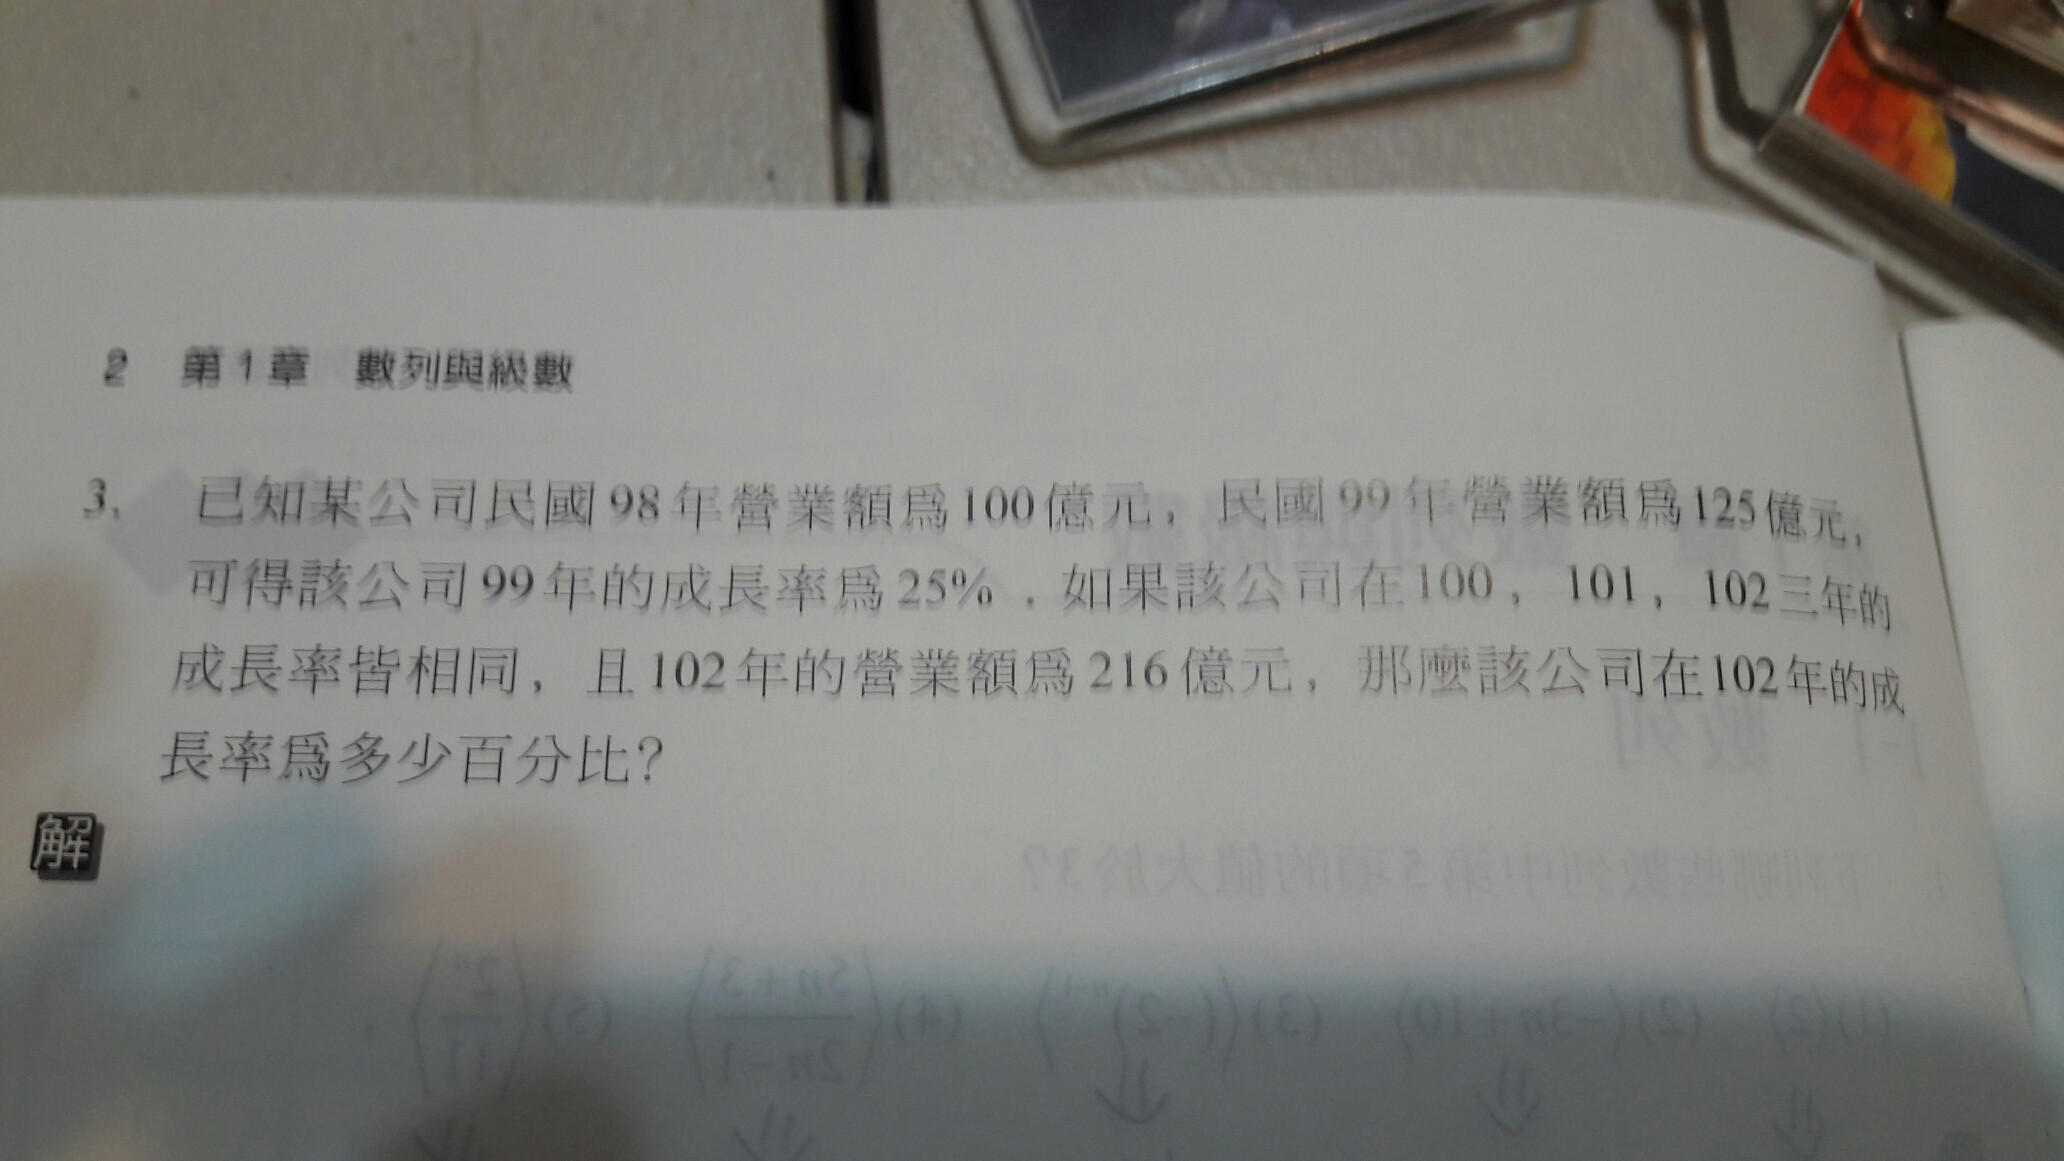 2 第1章 數列與級數
3. 已知某公司民國98年營業額為100億元，民國99年營業額為125億元，
可得該公司99年的成長率為25%．如果該公司在100，101，102三年的
成長率皆相同，且102年的營業額為216億元，那麼該公司在102年的成
長率為多少百分比？
解